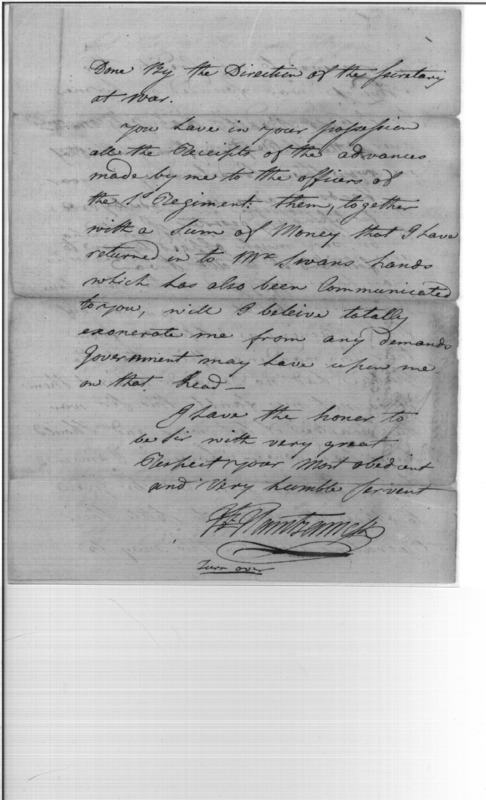 Done By the Direction of the Secretary
at War.
You have in your possession
all the Receipts of the advances
made by me to the officers of
the 1st Regiment: them, together
with a Sum of Money that I have
returned in to Mr Swans hands
which has also been Communicated
to you, will I beleive totally
exonerate me from any demands
Government may have upon me
on that head—
I have the honor to
be Sir with very great
Respect your Most obedient
and Very humble Servent
Hamtramck
Turn over